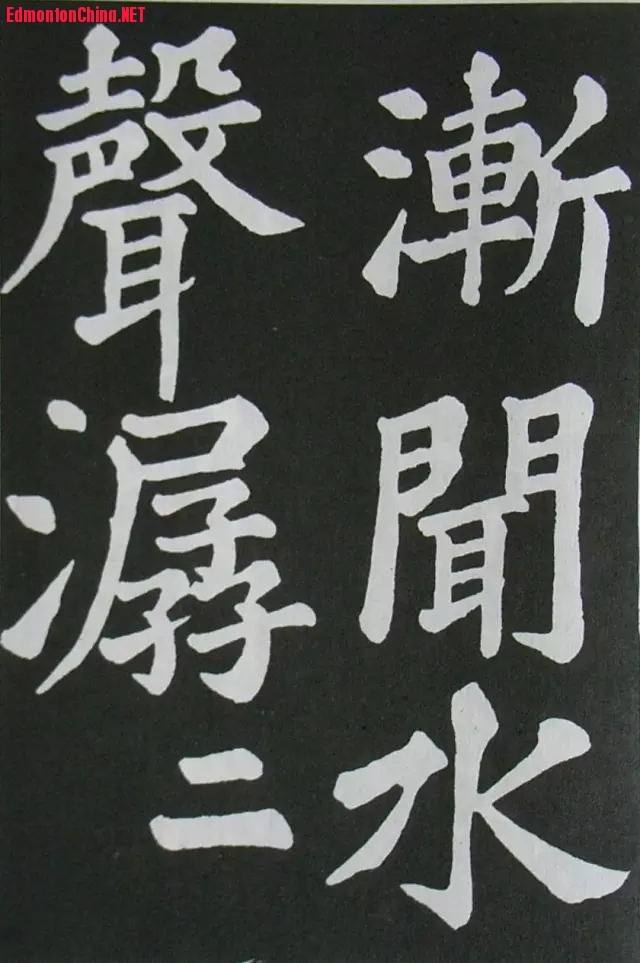 EdmontonChina.NET
漸聞水
聲潺二